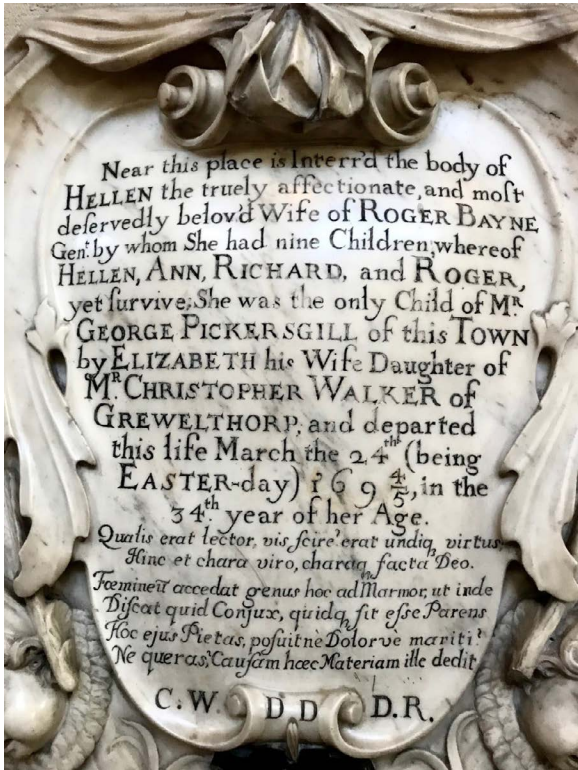 Near this place is Interr'd the body of
HELLEN the truely affectionate, and moſt
deſervedly belov'd Wife of ROGER BAYNE
Genᵗ. by whom She had nine Children; whereof
HELLEN, ANN, RICHARD, and ROGER,
yet ſurvive; She was the only Child of Mᴿ
GEORGE PICKERSGILL of this TOWN
by ELIZABETH his Wife Daughter of
Mᴿ. CHRISTOPHER WALKER of
GREWELTHORP, and departed
this life March the 24ᵗʰ (being
EASTER-day) 169⁴⁄₅, in the
34ᵗʰ year of her Age.
Qualis erat lector, vis ſcire? erat undiq, virtus,
Hinc et chara viro, charaq facta Deo.
Fœmineū accedat genus hoc ad Marmor, ut inde
Diſcat quid Conjux, quidq ſit eſse Parens
Hoc ejus Pietas, poſuitnè Dolorvè mariti?
Ne queras; Cauſam hœc Materiam ille dedit
C. W. D D D. R.